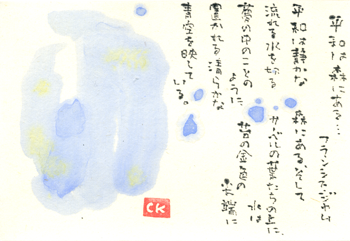 平和は森にある…
フランシス・ジャム
平和は静かな
森にある、そして
流れる水を切る
サーベルの葉たちの上に、
夢の中のことの
ように
水は
苔の金色の
尖端に
置かれる清らかな
青空を映して
いる。
CK